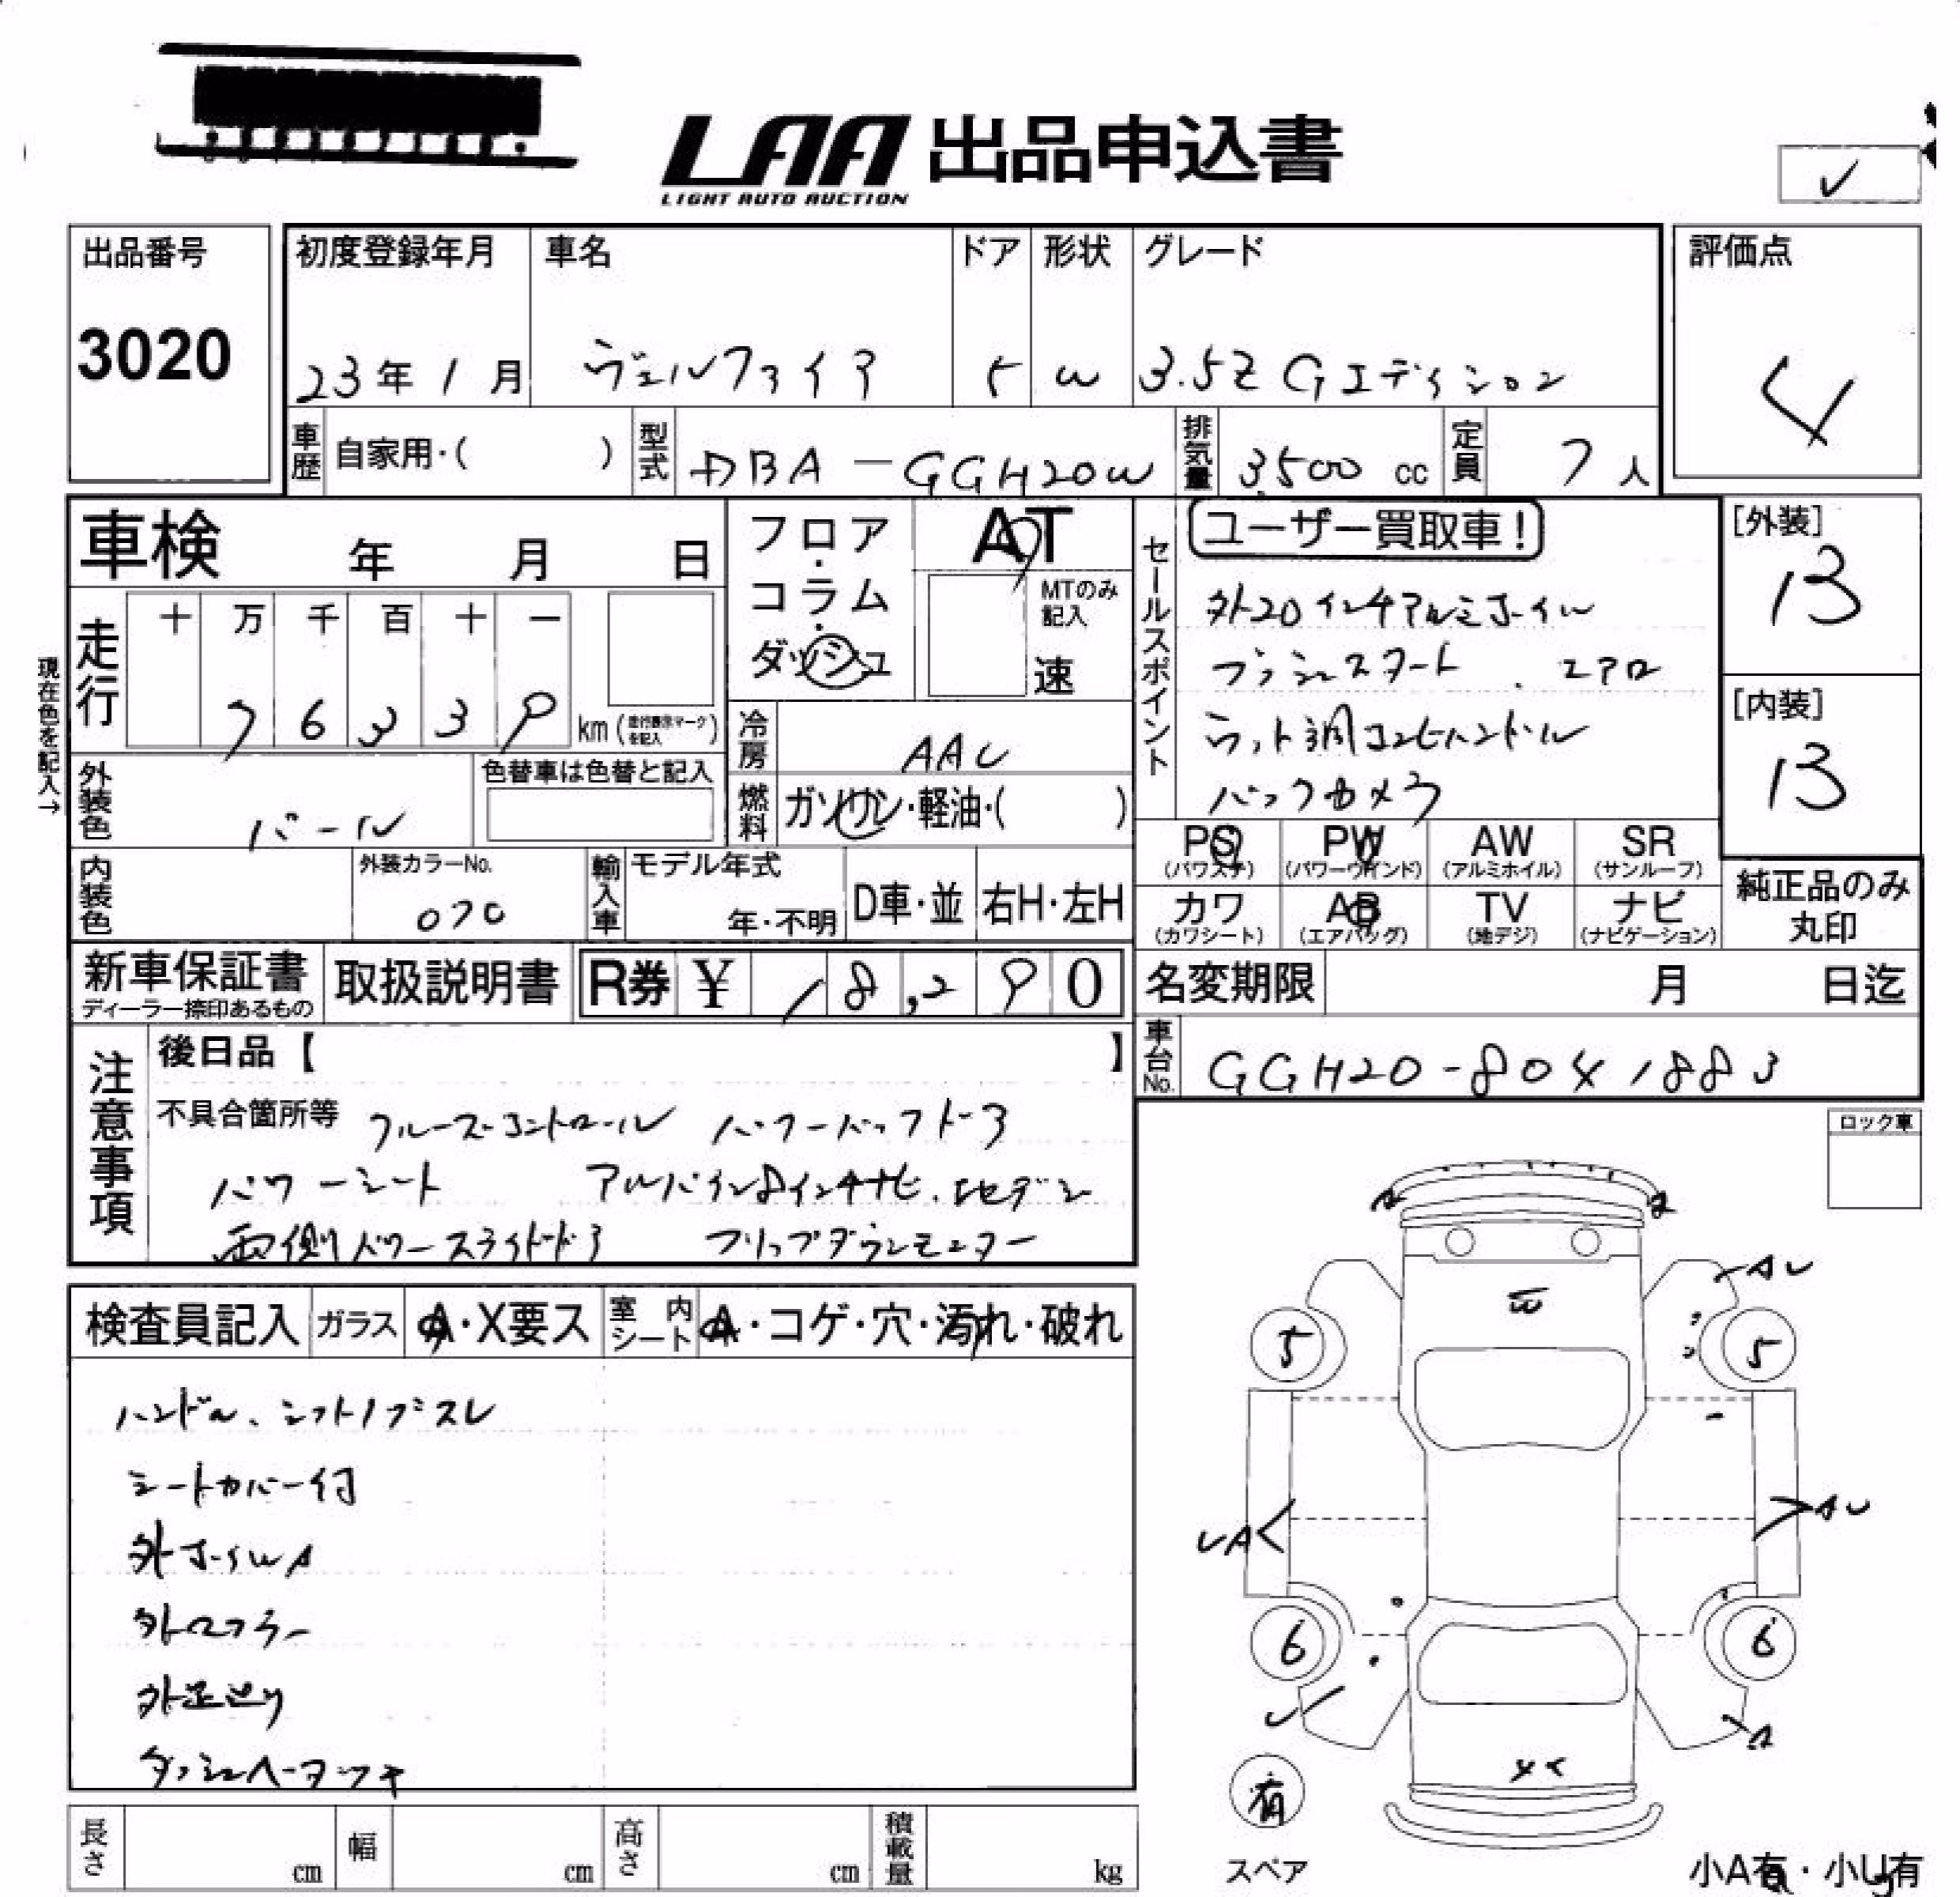 LAA 出品申込書
LIGHT AUTO AUCTION
✓
出品番号
3020
初度登録年月
23年1月
車名
ヴェルファイア
ドア
5
形状
W
グレード
3.5Z Gエディション
評価点
4
車歴
自家用・( )
型式
DBA-GGH20W
排気量
3,500 cc
定員
7人
車検 年 月 日
フロア・コラム・ダッシュ
AT
MTのみ記入
速
セールスポイント
ユーザー買取車!
外20インチアルミホイル
プッシュスタート、エアロ
ウット調コンビハンドル
バックカメラ
[外装]
13
[内装]
13
現在色を記入→
走行
十 万 千 百 十 一
7 6 3 3 9
km (走行表示マークを記入)
冷房
AAC
外装色
パール
色替車は色替と記入
燃料
ガソリン・軽油・( )
PS (パワステ)
PW (パワーウインド)
AW (アルミホイル)
SR (サンルーフ)
カワ (カワシート)
AB (エアバッグ)
TV (地デジ)
ナビ (ナビゲーション)
純正品のみ丸印
内装色
外装カラーNo.
070
輸入車
モデル年式
年・不明
D車・並
右H・左H
新車保証書
ディーラー捺印あるもの
取扱説明書
R券 ¥ 18,290
名変期限 月 日迄
車台No.
GGH20-8041883
注意事項
後日品【 】
不具合箇所等 クルーズコントロール パワーバックドア
パワーシート アルパイン8インチナビ、地デジ
両側パワースライドドア フリップダウンモニター
ロック車
検査員記入
ガラス
A・X要ス
室内シート
A・コゲ・穴・汚れ・破れ
ハンドル、シフトノブスレ
シートカバー付
外ホイルA
外マフラー
外足廻り
AU
W
5
5
UA
AU
6
6
A
有
スペア
小A有・小U有
長さ cm
幅 cm
高さ cm
積載量 kg